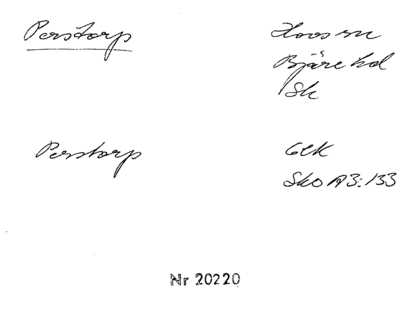 Perstorp
Hovs sn
Bjäre hd
Sk
Perstorp
GEK
Sko A3:133
Nr 20220